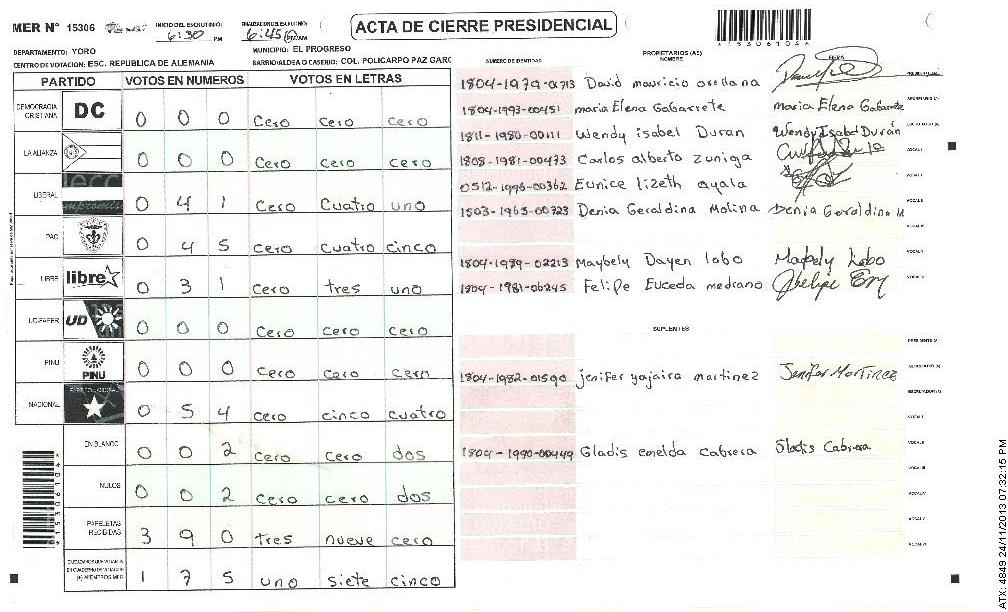 MER N° 15306
INICIO DEL ESCRUTINIO: 6:30 PM
FINALIZACION DEL ESCRUTINIO: 6:45 PM/AM
ACTA DE CIERRE PRESIDENCIAL
A15306104A
DEPARTAMENTO: YORO
MUNICIPIO: EL PROGRESO
CENTRO DE VOTACION: ESC. REPUBLICA DE ALEMANIA
BARRIO/ALDEA O CASERIO: COL. POLICARPO PAZ GARC
PARTIDO VOTOS EN NUMEROS VOTOS EN LETRAS
DEMOCRACIA CRISTIANA DC 0 0 0 cero cero cero
LA ALIANZA 0 0 0 cero cero cero
LIBERAL 0 4 1 cero cuatro uno
PAC 0 4 5 cero cuatro cinco
LIBRE libre 0 3 1 cero tres uno
UD-FAPER UD 0 0 0 cero cero cero
PINU PINU 0 0 0 cero cero cero
NACIONAL 0 5 4 cero cinco cuatro
EN BLANCO 0 0 2 cero cero dos
NULOS 0 0 2 cero cero dos
PAPELETAS RECIBIDAS 3 9 0 tres nueve cero
CIUDADANOS QUE VOTARON EN CUADERNO DE VOTACION (+) MIEMBROS MER 1 7 5 uno siete cinco
NUMERO DE IDENTIDAD PROPIETARIOS (AS) NOMBRE FIRMA
1804-1979-01713 David mauricio orellana PRESIDENTE (A)
1804-1993-00451 maria Elena Gabarrete Maria Elena Gabarrete SECRETARIO (A)
1811-1980-00111 Wendy isabel Duran Wendy Isabel Durán ESCRUTADOR (A)
1808-1981-00473 Carlos alberto zuniga VOCAL I
0512-1996-00362 Eunice lizeth ayala VOCAL II
1503-1965-00723 Denia Geraldina Molina Denia Geraldina M VOCAL III
VOCAL IV
1804-1989-02213 Maybely Dayen lobo Maybely Lobo VOCAL V
1804-1981-06245 Felipe Euceda medrano VOCAL VI
SUPLENTES
PRESIDENTE (A)
1804-1982-01590 jenifer yajaira martinez Jenifer Martinez SECRETARIO (A)
ESCRUTADOR (A)
VOCAL I
1804-1990-00449 Gladis emelda cabrera Gladis Cabrera VOCAL II
VOCAL III
VOCAL IV
VOCAL V
VOCAL VI
ATX: 4849 24/11/2013 07:32:15 PM